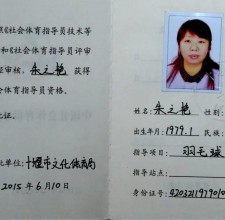 照《社会体育指导员技术等
和《社会体育指导员评审
经审核，朱之艳 获得
社会体育指导员资格。
此证。
批单位：十堰市文化体育局
2015 年 6 月 10 日
姓名：朱之艳 性别：
出生年月：1979.1 民族：
指导项目：羽毛球
指导站点：
身份证号：4203211979010